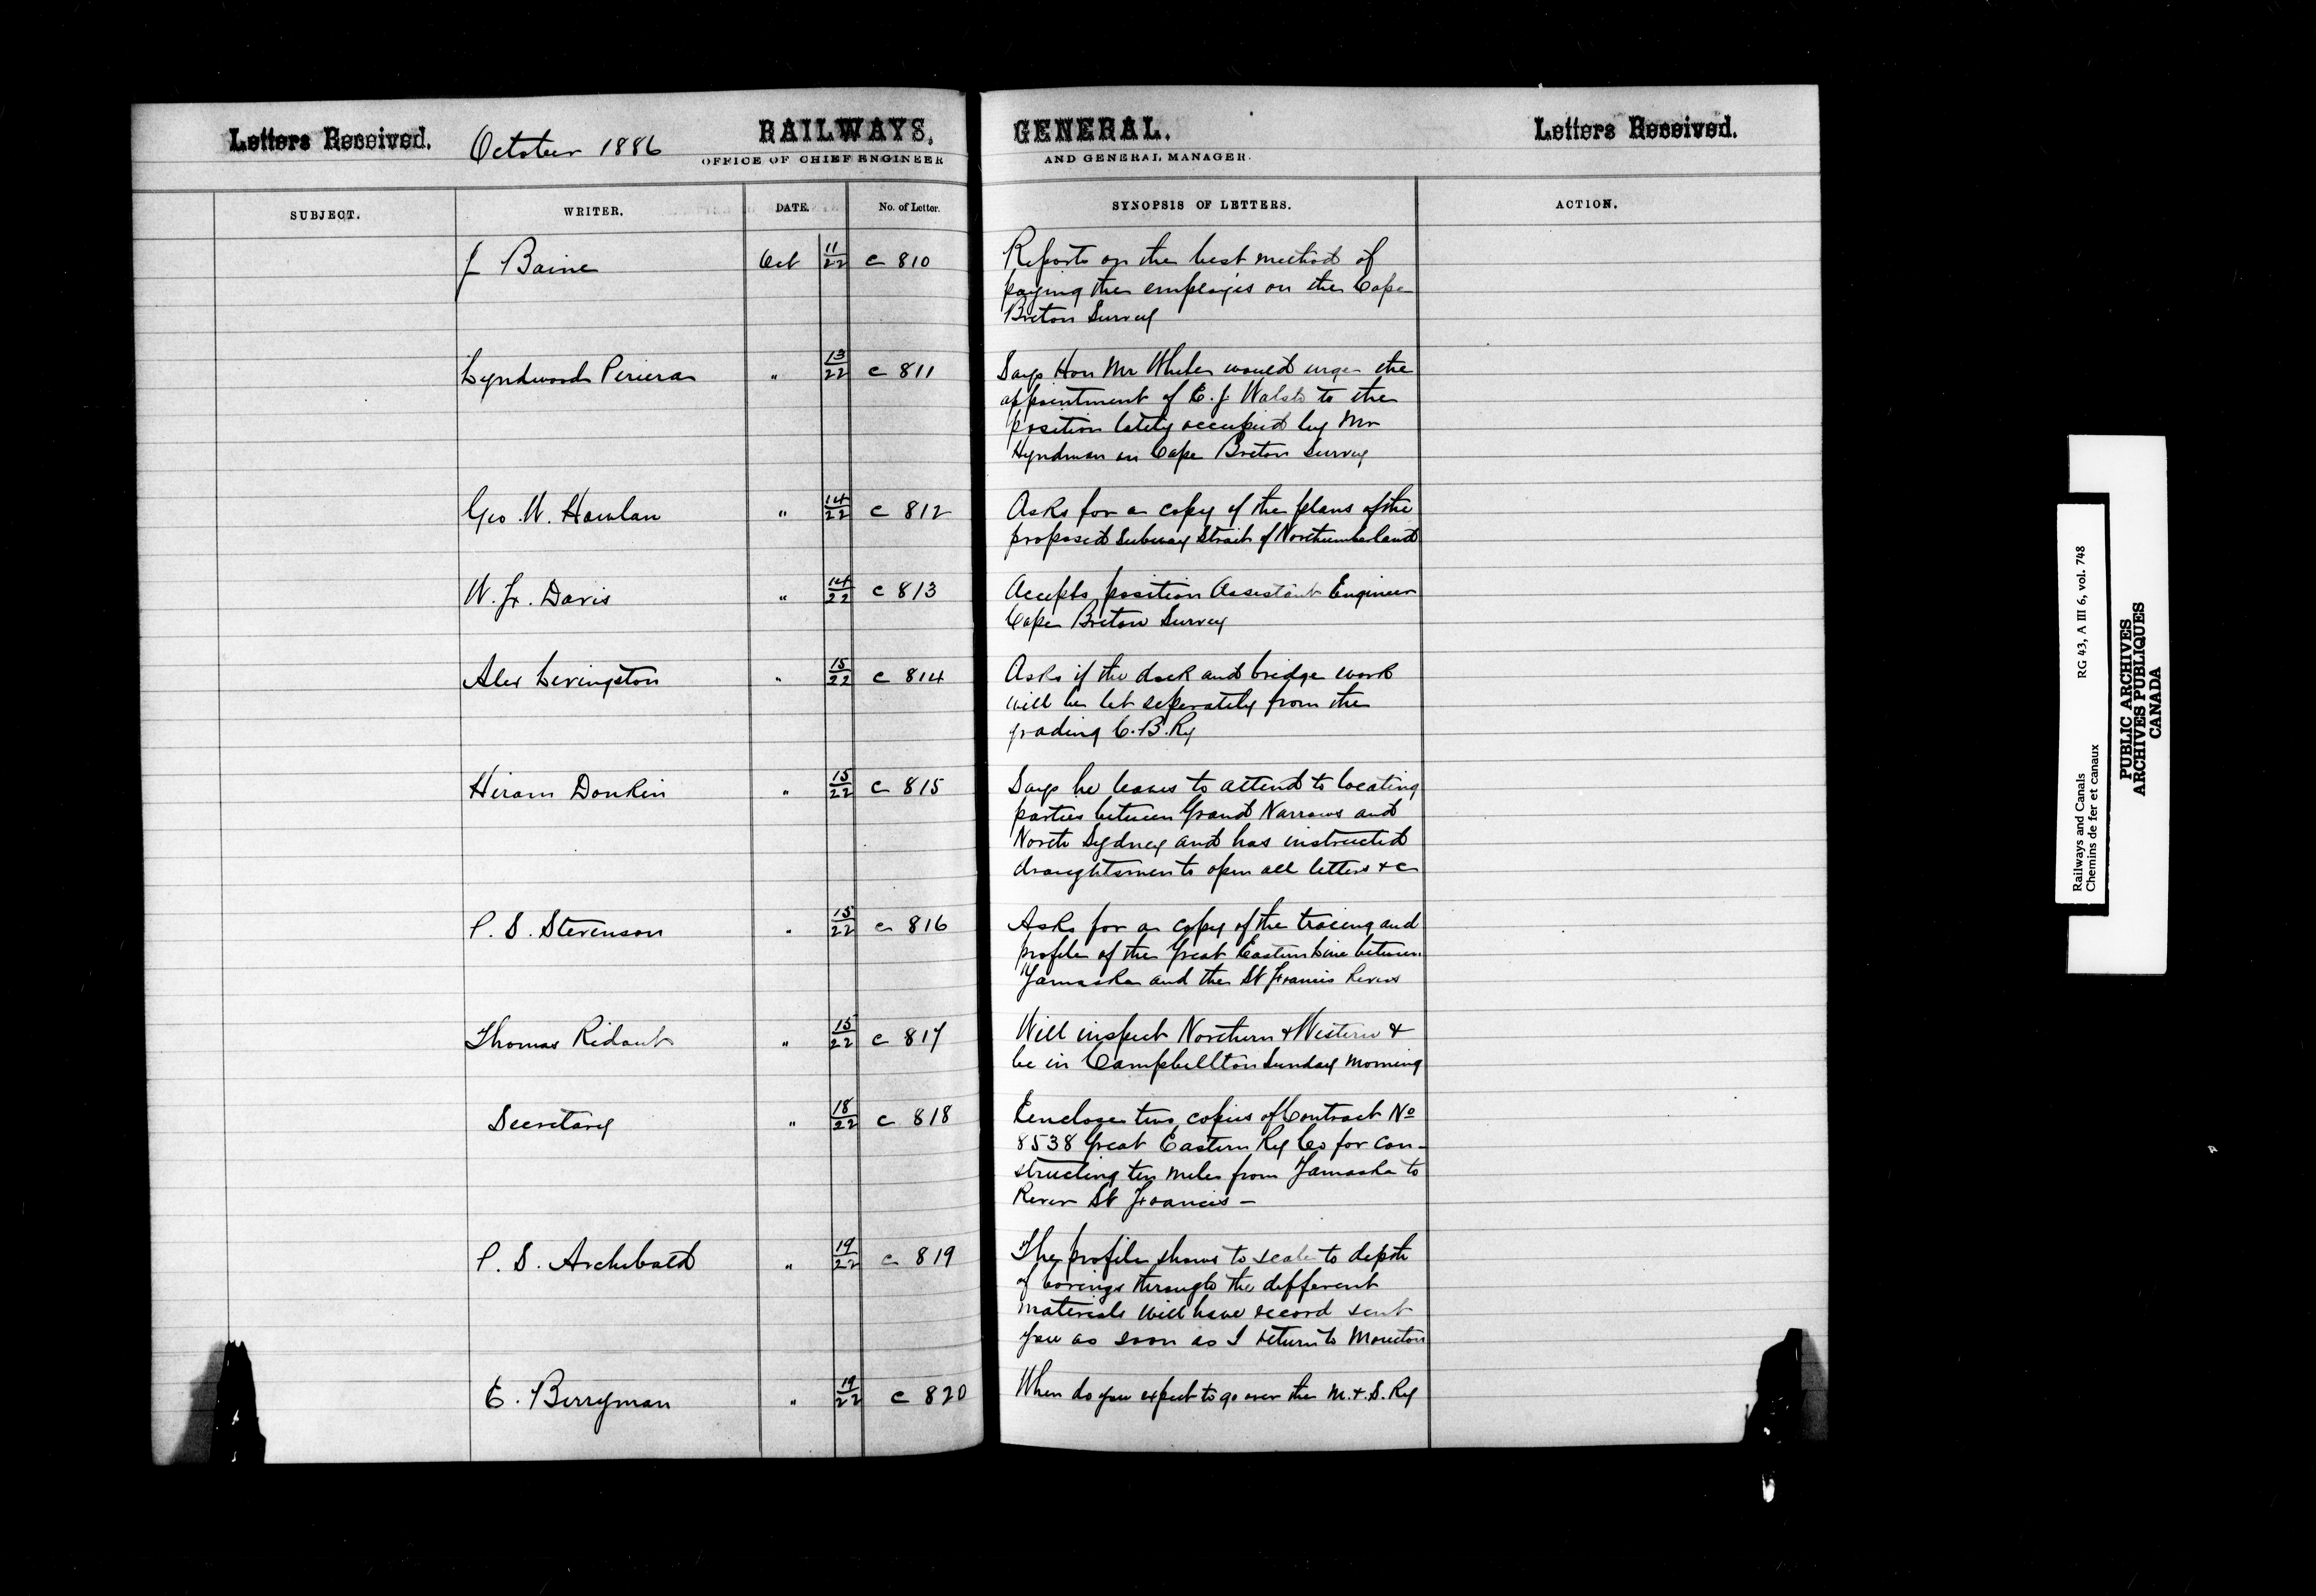 Letters Received. October 1886 RAILWAYS, GENERAL. Letters Received.
OFFICE OF CHIEF ENGINEER AND GENERAL MANAGER.
SUBJECT. WRITER. DATE. No. of Letter. SYNOPSIS OF LETTERS. ACTION.
J Baine Oct 11/22 c 810 Reports on the best method of
paying the employés on the Cape
Breton Survey
Lyndwood Periera " 13/22 c 811 Says Hon Mr White would urge the
appointment of E. J. Walsh to the
position lately occupied by Mr
Hyndman on Cape Breton Survey
Geo. W. Howlan " 14/22 c 812 Asks for a copy of the plans of the
proposed Subway Strait of Northumberland
W. Fr. Davis " 14/22 c 813 Accepts position Assistant Engineer
Cape Breton Survey
Alex Livingston " 15/22 c 814 Asks if the dock and bridge work
will be let seperately from the
grading C. B. Ry
Hiram Donkin " 15/22 c 815 Says he leaves to attend to locating
parties between Grand Narrows and
North Sydney and has instructed
draughtsmen to open all letters &c
P. S. Stevenson " 15/22 c 816 Asks for a copy of the tracing and
profile of the Great Eastern Line between
Yamaska and the St Francis Rivers
Thomas Ridout " 15/22 c 817 Will inspect Northern & Western &
be in Campbellton Sunday morning
Secretary " 18/22 c 818 Encloses two copies of Contract No
8538 Great Eastern Ry Co for con-
structing ten miles from Yamaska to
River St Francis —
P. S. Archibald " 19/22 c 819 The profile shows to scale to depth
of borings through the different
materials will have record sent
you as soon as I return to Moncton
E. Berryman " 19/22 c 820 When do you expect to go over the M. & S. Ry
Railways and Canals RG 43, A III 6, vol. 748
Chemins de fer et canaux
PUBLIC ARCHIVES
ARCHIVES PUBLIQUES
CANADA